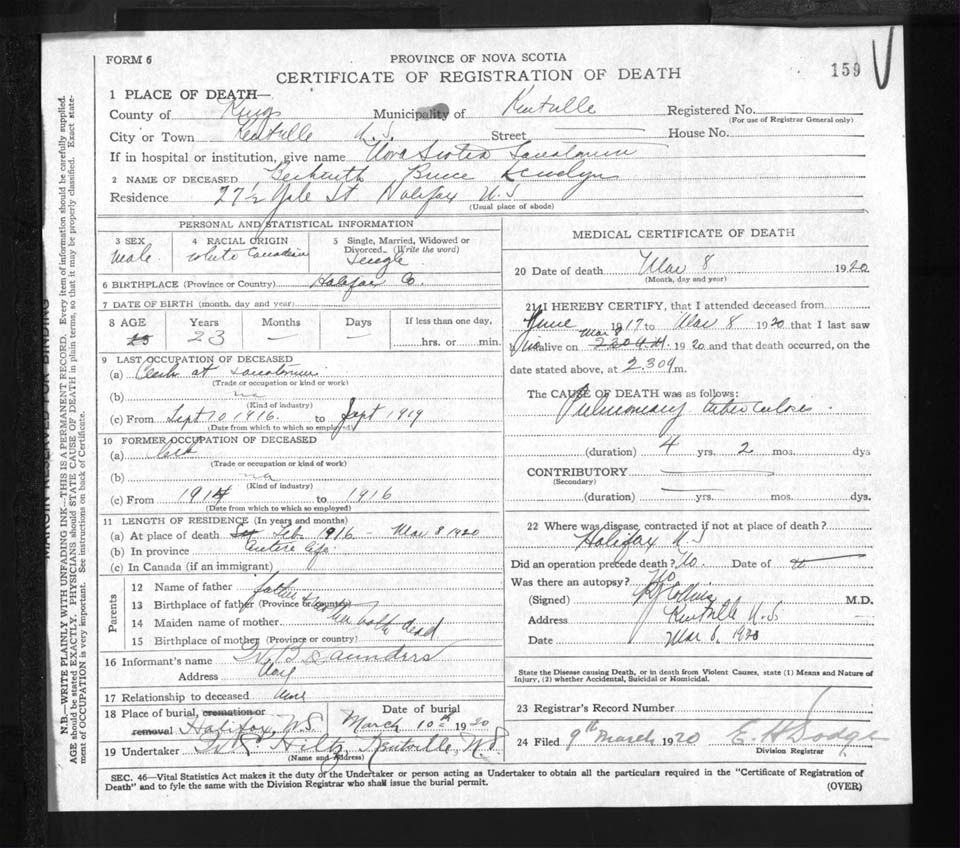 FORM 6
PROVINCE OF NOVA SCOTIA
CERTIFICATE OF REGISTRATION OF DEATH
159
1 PLACE OF DEATH—
County of Kings Municipality of Kentville Registered No.
(For use of Registrar General only)
City or Town Kentville N.S. Street House No.
If in hospital or institution, give name Nova Scotia Sanatorium
2 NAME OF DECEASED Bruce
Residence 27½ Yale St Halifax N.S
(Usual place of abode)
PERSONAL AND STATISTICAL INFORMATION
3 SEX
Male
4 RACIAL ORIGIN
White Canadian
5 Single, Married, Widowed or Divorced (Write the word)
Single
6 BIRTHPLACE (Province or Country) Halifax Co.
7 DATE OF BIRTH (month, day and year)
8 AGE Years Months Days If less than one day,
23 — — hrs. or min.
9 LAST OCCUPATION OF DECEASED
(a) at Sanatorium
(Trade or occupation or kind or work)
(b) na
(Kind of industry)
(c) From Sept 10 1916 to Sept 1919
(Date from which to which so employed)
10 FORMER OCCUPATION OF DECEASED
(a)
(Trade or occupation or kind of work)
(b) na
(Kind of industry)
(c) From 1914 to 1916
(Date from which to which so employed)
11 LENGTH OF RESIDENCE (In years and months)
(a) At place of death Feb. 1916 - Mar 8 1920
(b) In province Entire life
(c) In Canada (if an immigrant)
Parents
12 Name of father father &
13 Birthplace of father (Province or country) mother both dead
14 Maiden name of mother
15 Birthplace of mother (Province or country)
16 Informant's name W B Saunders
Address
17 Relationship to deceased none
18 Place of burial, cremation or removal Halifax, N.S. Date of burial March 10th 1920
19 Undertaker Hiltz, Kentville, N.S.
(Name and Address)
MEDICAL CERTIFICATE OF DEATH
20 Date of death Mar 8 1920
(Month, day and year)
21 I HEREBY CERTIFY, that I attended deceased from
June 1917 to Mar 8 1920 that I last saw
him alive on Mar 8 1920 and that death occurred, on the
date stated above, at 2.30 a m.
The CAUSE OF DEATH was as follows:
Pulmonary tuberculosis.
(duration) 4 yrs. 2 mos. dys
CONTRIBUTORY
(Secondary)
(duration) yrs. mos. dys.
22 Where was disease contracted if not at place of death?
Halifax N.S
Did an operation precede death? No. Date of
Was there an autopsy? No
(Signed) Collins M.D.
Address Kentville N.S.
Date Mar 8, 1920
State the Disease causing Death, or in death from Violent Causes, state (1) Means and Nature of Injury, (2) whether Accidental, Suicidal or Homicidal.
23 Registrar's Record Number
24 Filed 9th March 1920 E. H Dodge
Division Registrar
SEC. 46—Vital Statistics Act makes it the duty of the Undertaker or person acting as Undertaker to obtain all the particulars required in the "Certificate of Registration of
Death" and to fyle the same with the Division Registrar who shall issue the burial permit. (OVER)
MARGIN RESERVED FOR BINDING
N.B.—WRITE PLAINLY WITH UNFADING INK—THIS IS A PERMANENT RECORD. Every item of information should be carefully supplied.
AGE should be stated EXACTLY. PHYSICIANS should STATE CAUSE OF DEATH in plain terms, so that it may be properly classified. Exact state-
ment of OCCUPATION is very important. See instructions on back of Certificate.